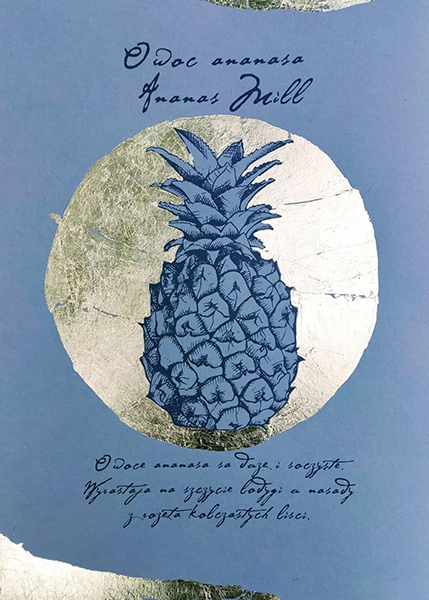 Owoc ananasa
Ananas Mill
Owoce ananasa sa duze i soczyste.
Wyrastaja na szczycie lodygi u nasady
z rozeta kolczastych lisci.